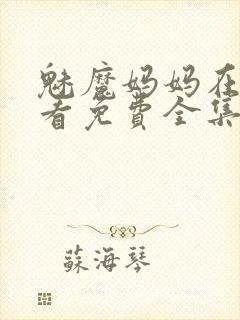 魅魔妈妈在
看免费全集
蘇海琴